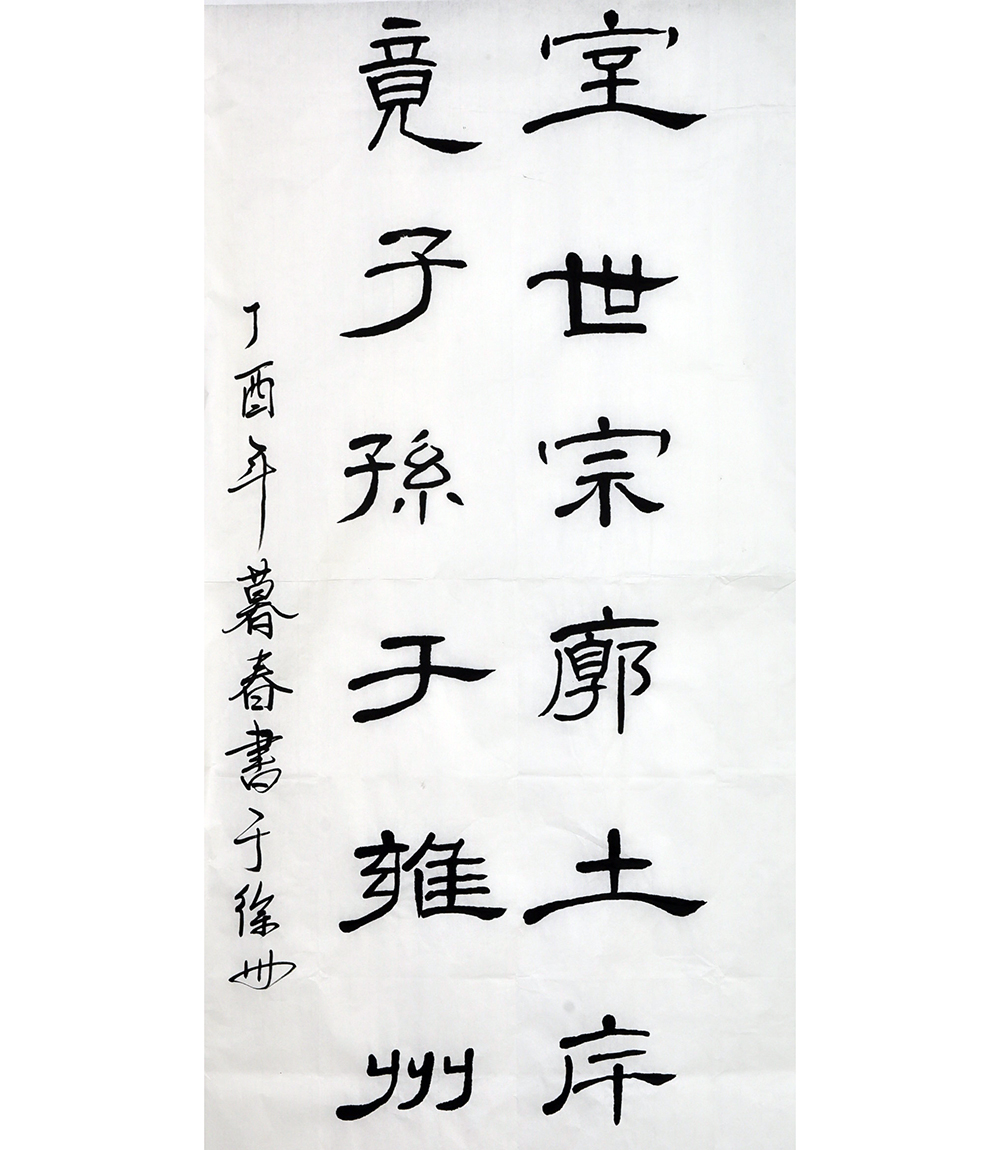 室世宗廓土斥
竟子孫于雍州
丁酉年暮春書于徐州